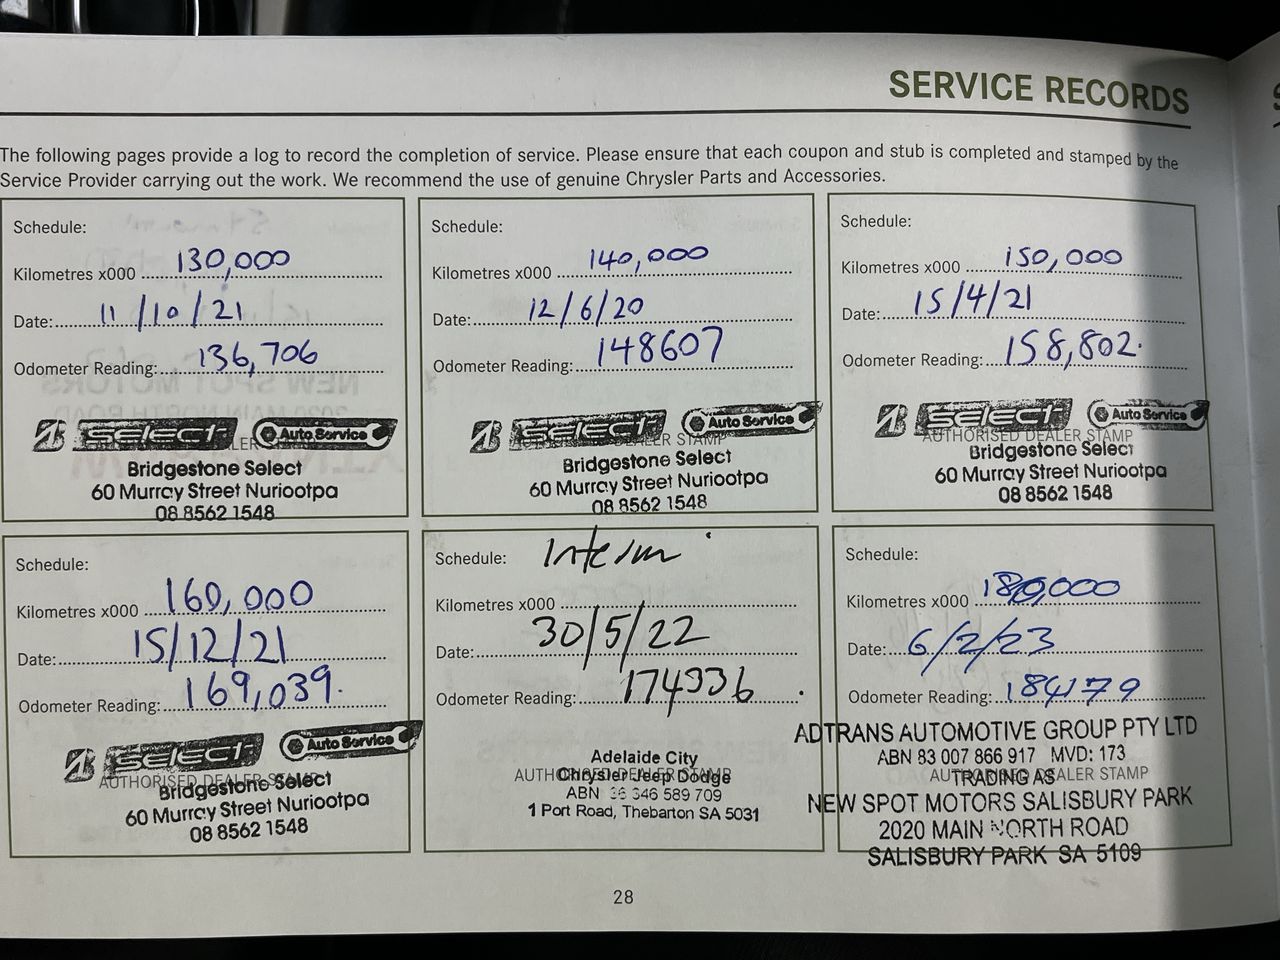 SERVICE RECORDS
The following pages provide a log to record the completion of service. Please ensure that each coupon and stub is completed and stamped by the
Service Provider carrying out the work. We recommend the use of genuine Chrysler Parts and Accessories.
Schedule:
Kilometres x000 130,000
Date: 11/10/21
Odometer Reading: 136,706
SELECT Auto Service
Bridgestone Select
60 Murray Street Nuriootpa
08 8562 1548
Schedule:
Kilometres x000 140,000
Date: 12/6/20
Odometer Reading: 148607
SELECT Auto Service
DEALER STAMP
Bridgestone Select
60 Murray Street Nuriootpa
08 8562 1548
Schedule:
Kilometres x000 150,000
Date: 15/4/21
Odometer Reading: 158,802.
SELECT Auto Service
AUTHORISED DEALER STAMP
Bridgestone Select
60 Murray Street Nuriootpa
08 8562 1548
Schedule:
Kilometres x000 160,000
Date: 15/12/21
Odometer Reading: 169,039.
SELECT Auto Service
AUTHORISED DEALER STAMP
Bridgestone Select
60 Murray Street Nuriootpa
08 8562 1548
Schedule: Interim
Kilometres x000
Date: 30/5/22
Odometer Reading: 174336
Adelaide City
AUTHORISED DEALER STAMP
Chrysler Jeep Dodge
ABN 36 346 589 709
1 Port Road, Thebarton SA 5031
Schedule:
Kilometres x000 180,000
Date: 6/2/23
Odometer Reading: 184179
ADTRANS AUTOMOTIVE GROUP PTY LTD
ABN 83 007 866 917 MVD: 173
AUTHORISED DEALER STAMP
TRADING AS
NEW SPOT MOTORS SALISBURY PARK
2020 MAIN NORTH ROAD
SALISBURY PARK SA 5109
28